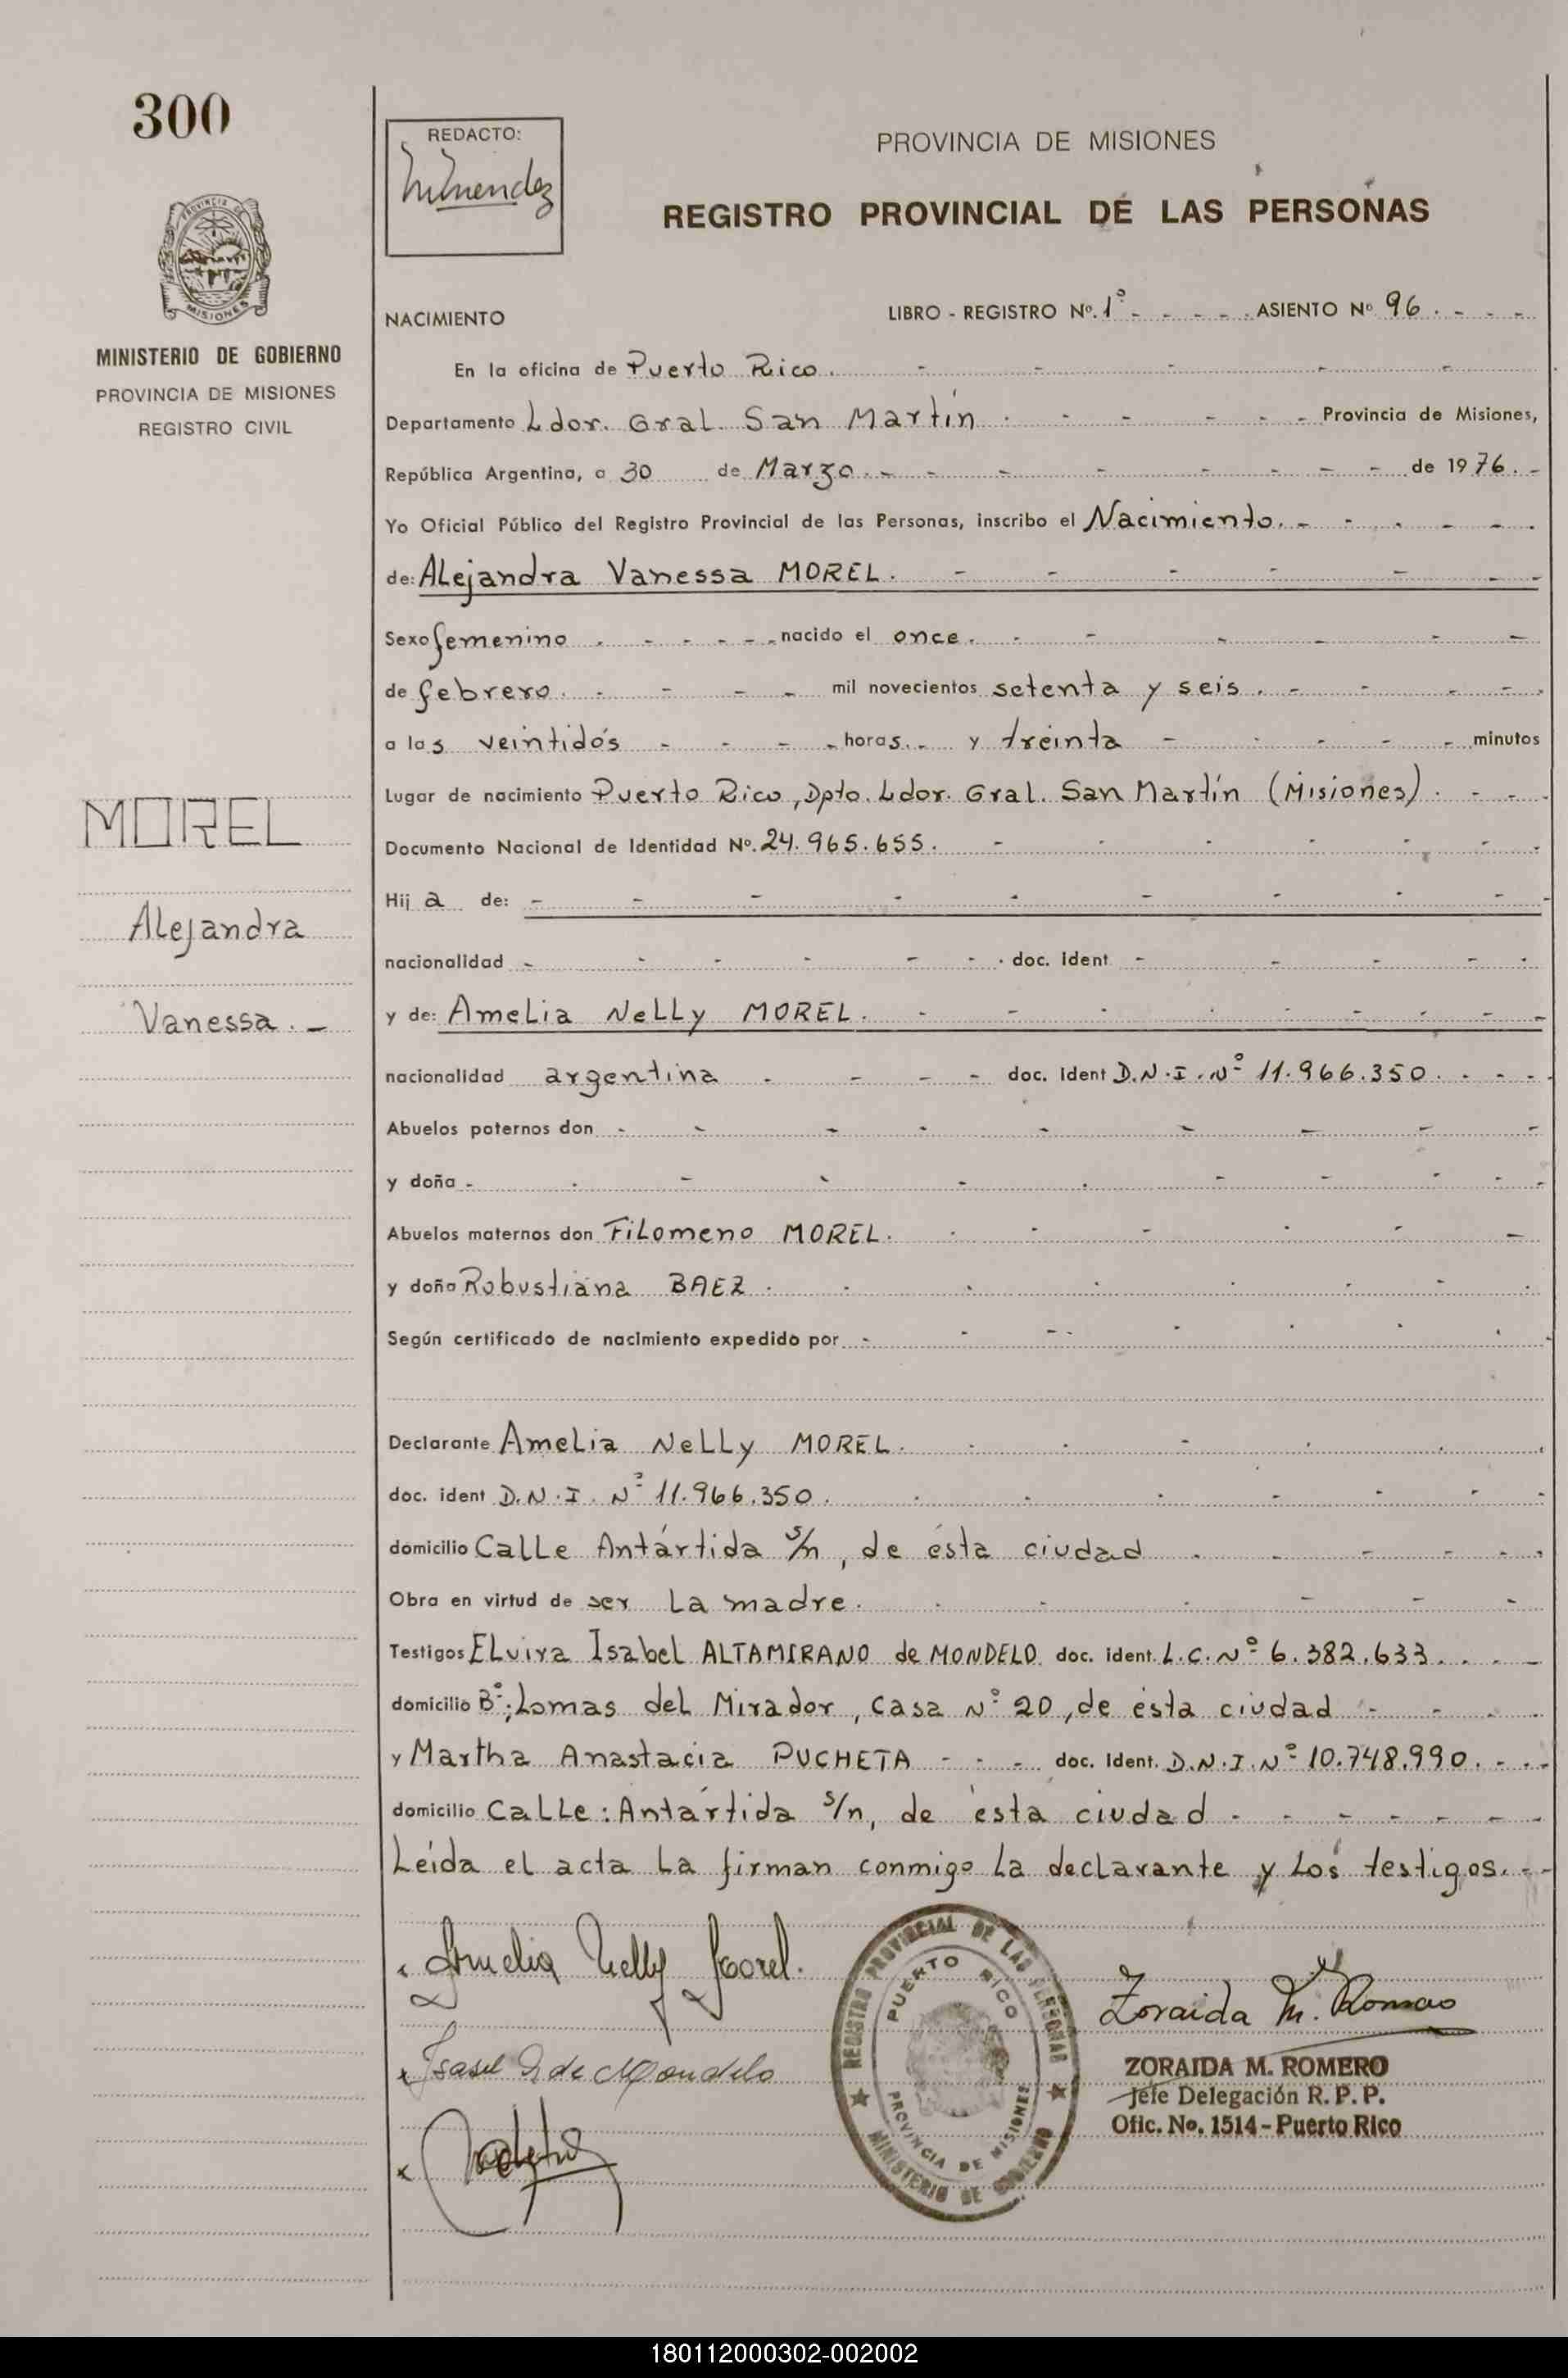 300
REDACTO:
PROVINCIA DE MISIONES
REGISTRO PROVINCIAL DE LAS PERSONAS
MINISTERIO DE GOBIERNO
PROVINCIA DE MISIONES
REGISTRO CIVIL
MOREL
Alejandra
Vanessa.-
NACIMIENTO LIBRO - REGISTRO Nº. 1º ASIENTO Nº 96
En la oficina de Puerto Rico.
Departamento Ldor. Gral. San Martín Provincia de Misiones,
República Argentina, a 30 de Marzo.- de 1976.-
Yo Oficial Público del Registro Provincial de las Personas, inscribo el Nacimiento.-
de: Alejandra Vanessa MOREL.
Sexo femenino nacido el once.
de febrero. mil novecientos setenta y seis.
a las veintidós horas. y treinta minutos
Lugar de nacimiento Puerto Rico, Dpto. Ldor. Gral. San Martín (Misiones).
Documento Nacional de Identidad Nº. 24.965.655.
Hija de: -
nacionalidad - doc. ident -
y de: Amelia Nelly MOREL.
nacionalidad argentina doc. ident D.N.I. Nº 11.966.350.
Abuelos paternos don -
y doña -
Abuelos maternos don Filomeno MOREL.
y doña Robustiana BAEZ.
Según certificado de nacimiento expedido por -
Declarante Amelia Nelly MOREL.
doc. ident D.N.I. Nº 11.966.350.
domicilio Calle Antártida s/n, de ésta ciudad
Obra en virtud de ser la madre.
Testigos Elvira Isabel ALTAMIRANO de MONDELO doc. ident. L.C. Nº 6.382.633.
domicilio Bº; Lomas del Mirador, Casa Nº 20, de ésta ciudad
y Martha Anastacia PUCHETA doc. Ident. D.N.I. Nº 10.748.990.
domicilio Calle: Antártida s/n, de ésta ciudad
Leída el acta la firman conmigo la declarante y los testigos.-
Amelia Nelly Morel.
Isabel A de Mondelo
REGISTRO PROVINCIAL DE LAS PERSONAS
PUERTO RICO
PROVINCIA DE MISIONES
MINISTERIO DE GOBIERNO
Zoraida M. Romero
ZORAIDA M. ROMERO
Jefe Delegación R. P. P.
Ofic. No. 1514 - Puerto Rico
180112000302-002002